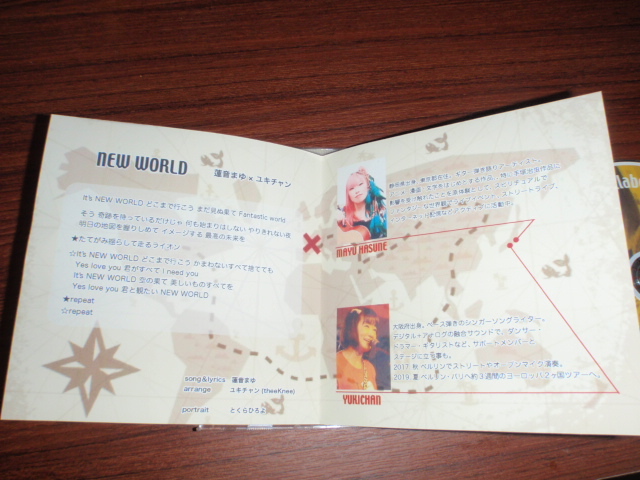 NEW WORLD 蓮音まゆ × ユキチャン
It's NEW WORLD どこまで行こう まだ見ぬ果て Fantastic world
そう 奇跡を待っているだけじゃ 何も始まりはしない やりきれない夜
明日の地図を握りしめて イメージする 最善の未来を
★たてがみ揺らして走るライオン
☆It's NEW WORLD どこまで行こう かまわないすべて捨てても
Yes love you 君がすべて I need you
It's NEW WORLD 空の果て 美しいものすべてを
Yes love you 君と観たい NEW WORLD
★repeat
☆repeat
song&lyrics 蓮音まゆ
arrange ユキチャン (theeKnee)
portrait とくらひろよ
静岡県出身、東京都在住。ギター弾き語りアーティスト。
MAYU HASUNE
大阪府出身。ベース弾きのシンガーソングライター。
デジタル+アナログの融合サウンドで、ダンサー・
ドラマー・ギタリストなど、サポートメンバーと
ステージに立つ事も。
2017. 秋 ベルリンでストリートやオープンマイク演奏。
2019. 夏 ベルリン・パリへ約3週間のヨーロッパ2ヶ国ツアーへ。
YUKICHAN
lab